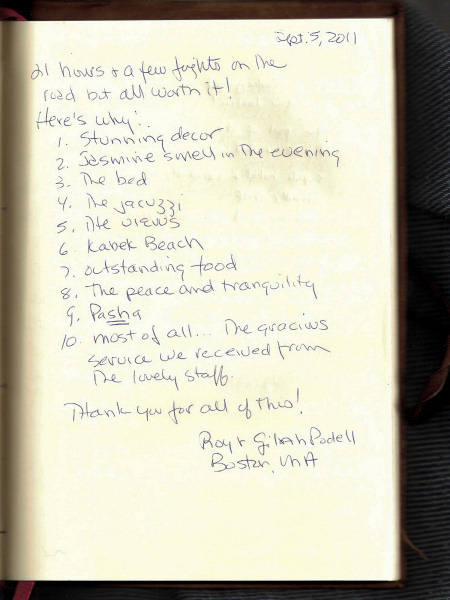 Sept. 5, 2011
21 hours & a few frights on the
road but all worth it!
Here's why:
1. Stunning decor
2. Jasmine smell in the evening
3. The bed
4. The jacuzzi
5. The views
6. Kabek Beach
7. outstanding food
8. The peace and tranquility
9. Pasha
10. most of all... The gracious
service we received from
the lovely staff.
Thank you for all of this!
Roy & Podell
Boston, MA